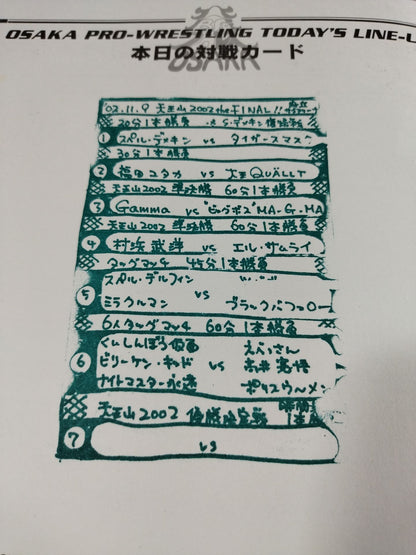 OSAKA PRO-WRESTLING TODAY'S LINE-U
OSAKA
本日の対戦カード
02.11.9 天王山2002 the FINAL!!
20分1本勝負
① スペル・デッキン vs タイガースマス
30分1本勝負
② 福田ユタカ vs 大王QUALLT
天王山2002 準決勝 60分1本勝負
③ Gamma vs "ビッグボス"MA-G-MA
天王山2002 準決勝 60分1本勝負
④ 村浜武洋 vs エル・サムライ
タッグマッチ 45分1本勝負
⑤ スペル・デルフィン
vs
ミラクルマン ブラックバッファロー
6人タッグマッチ 60分1本勝負
くいしんぼう仮面 えべっさん
⑥ ビリーケン・キッド vs
ナイトマスター ポリスウ〜メン
天王山2002 優勝決定戦 1本
⑦ vs